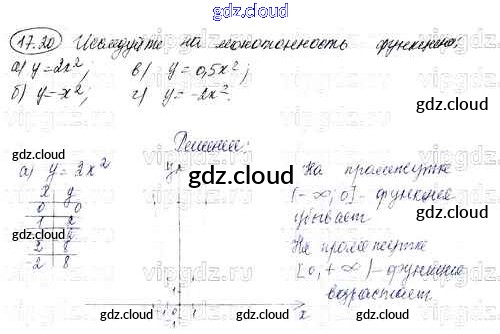 gdz.cloud
17.20 Исследуйте на монотонность функцию:
а) y=2x²; в) y=0,5x²;
б) y=-x²; г) y=-2x².
gdz.cloud
gdz.cloud
Решение:
а) y=2x²
x y
0 0
1 2
2 8
-2 8
y
x
gdz.cloud
На промежутке
(-∞; 0] - функция
убывает
На промежутке
[0; +∞) - функция
возрастает.
gdz.cloud
gdz.cloud
gdz.cloud
gdz.cloud